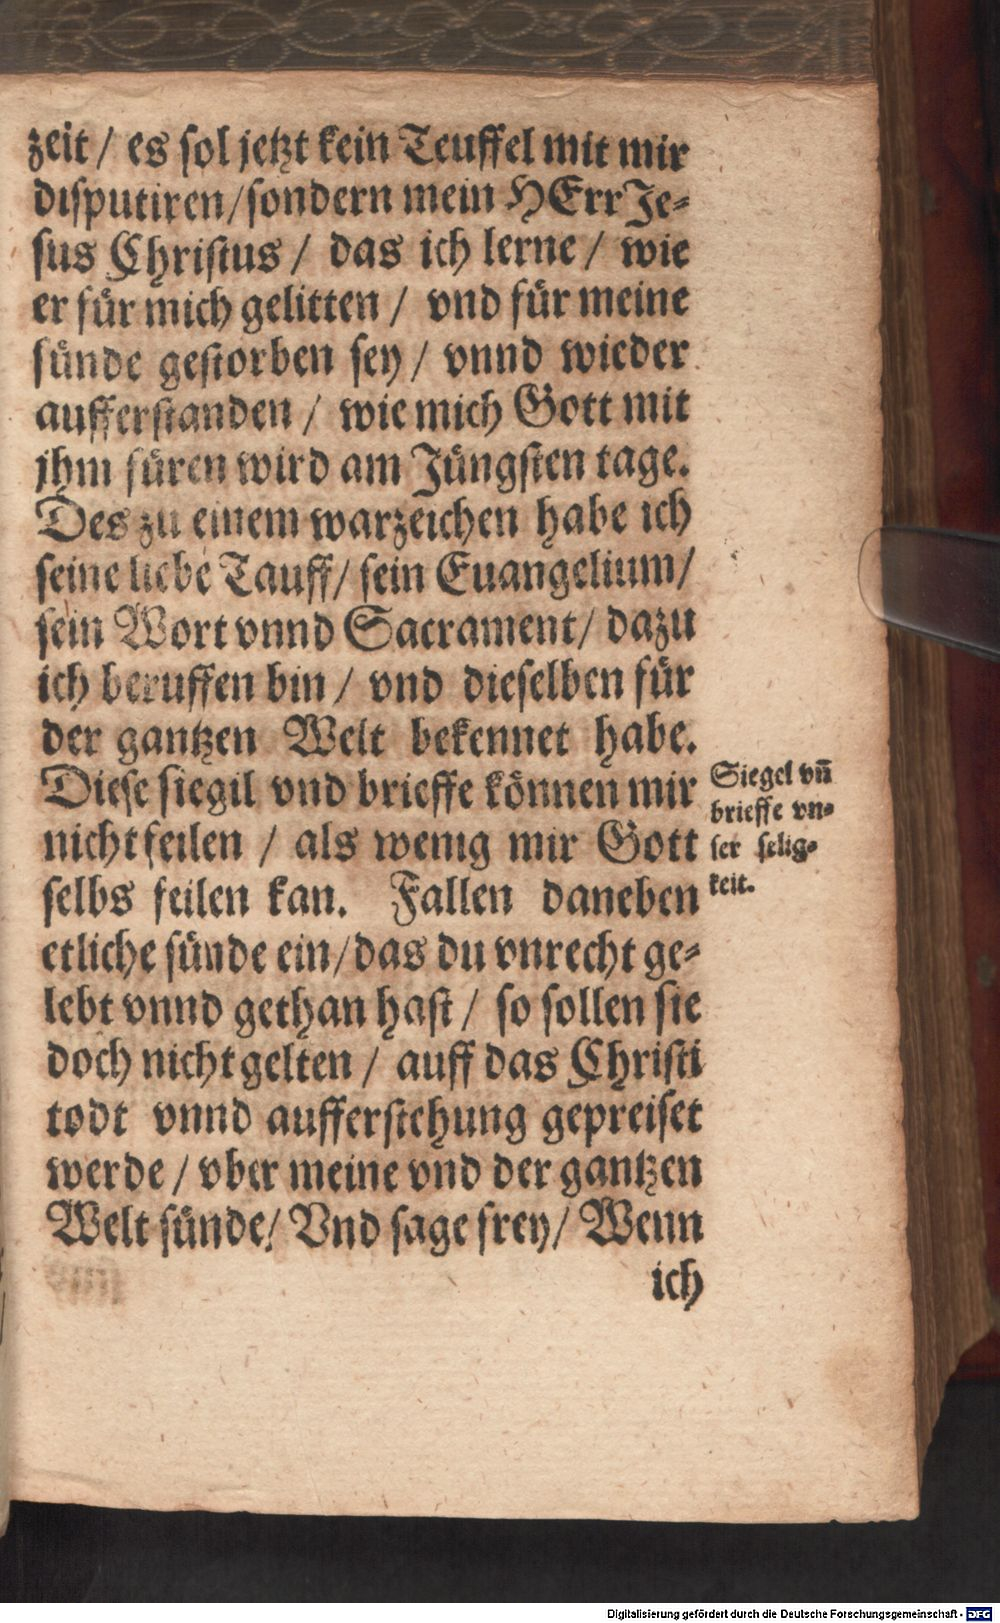 zeit / es sol jetzt kein Teuffel mit mir
disputiren / sondern mein HErr Je-
sus Christus / das ich lerne / wie
er für mich gelitten / vnd für meine
sünde gestorben sey / vnnd wieder
aufferstanden / wie mich Gott mit
jhm füren wird am Jüngsten tage.
Des zu einem warzeichen habe ich
seine liebe Tauff / sein Euangelium /
sein Wort vnnd Sacrament / dazu
ich beruffen bin / vnd dieselben für
der gantzen Welt bekennet habe.
Diese siegil vnd brieffe können mir
nicht feilen / als wenig mir Gott
selbs feilen kan. Fallen daneben
etliche sünde ein / das du vnrecht ge-
lebt vnnd gethan hast / so sollen sie
doch nicht gelten / auff das Christi
todt vnnd aufferstehung gepreiset
werde / vber meine vnd der gantzen
Welt sünde / Vnd sage frey / Wenn
ich
Siegel vñ
brieffe vn-
ser selig-
keit.
Digitalisierung gefördert durch die Deutsche Forschungsgemeinschaft - DFG